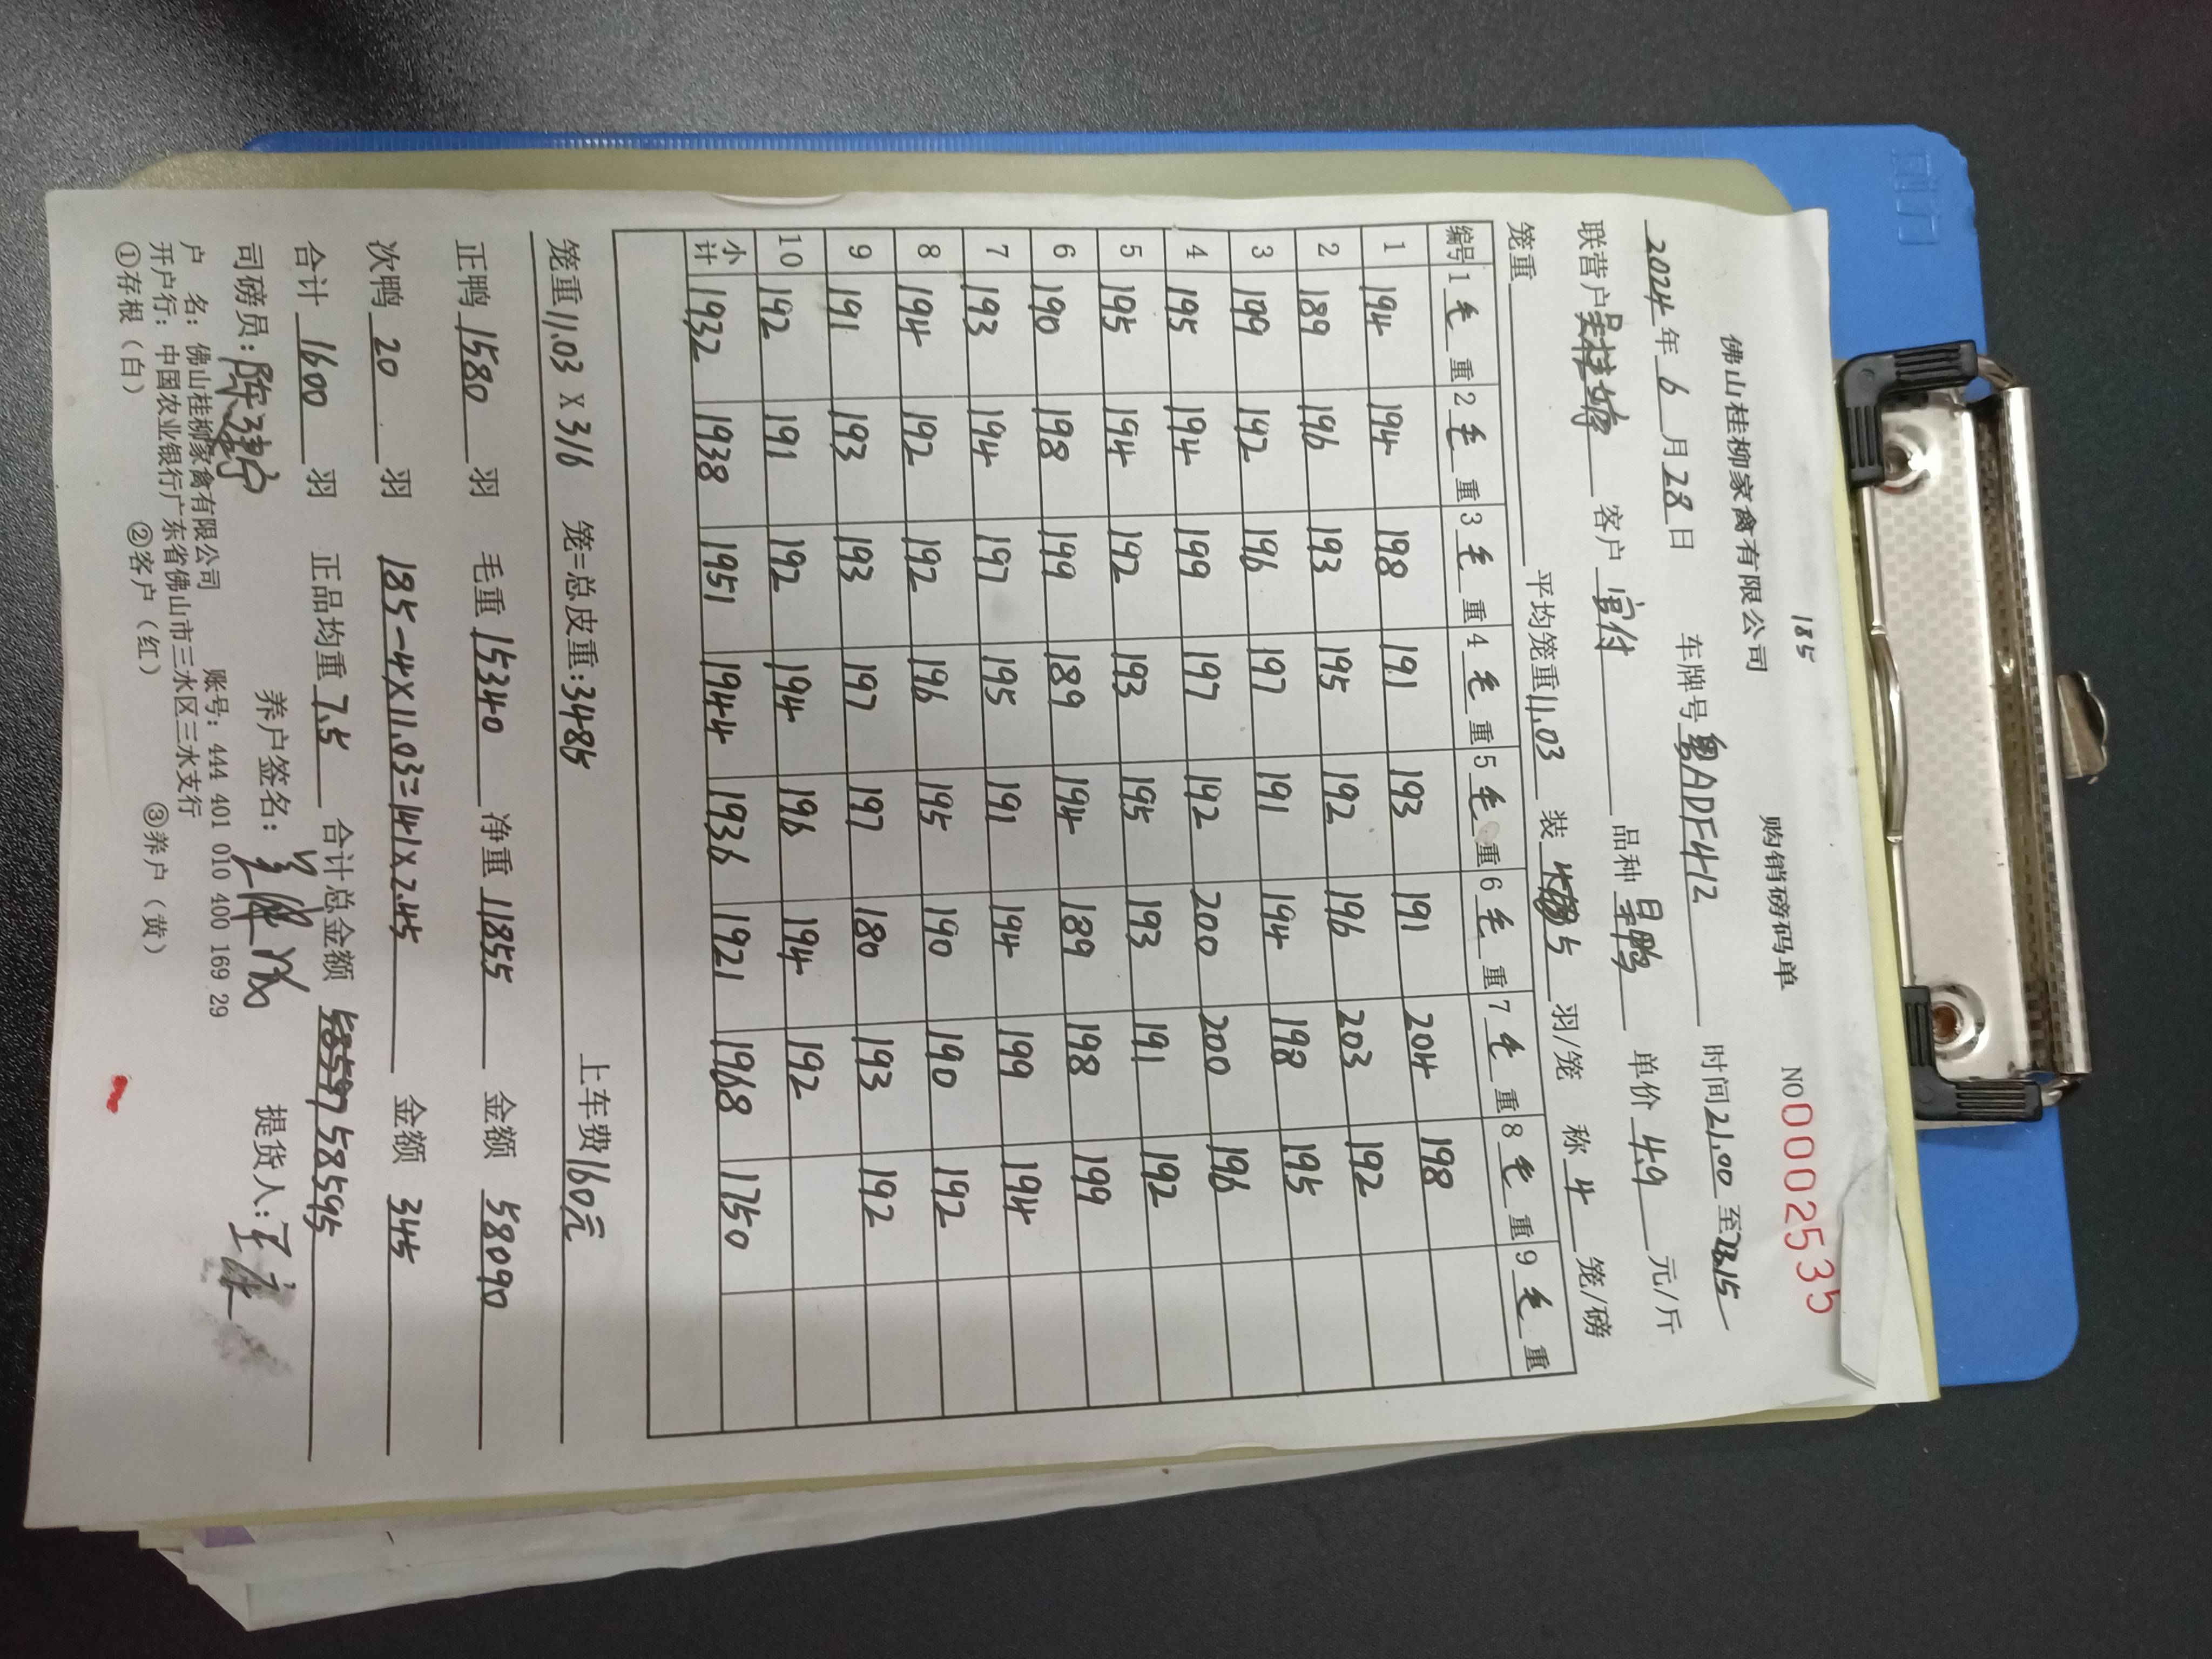 185
佛山桂柳家禽有限公司 购销磅码单 NO 0002535
2024年6月28日 车牌号 粤ADF412 时间 21.00 至 23.15
联营户 客户 品种 单价 4.9 元/斤
笼重 平均笼重 11.03 装 5 羽/笼 称 4 笼/磅
编号 1 毛重 2 毛重 3 毛重 4 毛重 5 毛重 6 毛重 7 毛重 8 毛重 9 毛重
1 194 194 198 191 193 191 204 198
2 189 196 193 195 192 196 203 192
3 199 192 196 197 191 194 198 195
4 195 194 199 197 192 200 200 196
5 195 194 192 193 195 193 191 192
6 190 198 199 189 194 189 198 199
7 193 194 197 195 191 194 199 194
8 194 192 192 196 195 190 190 192
9 191 193 193 197 197 180 193 192
10 192 191 192 194 196 194 192
小计 1932 1938 1951 1944 1936 1921 1968 1750
笼重 11.03 X 316 笼=总皮重:3485 上车费 160元
正鸭 1580 羽 毛重 15340 净重 11855 金额 58090
次鸭 20 羽 185-4X11.03=141X2.45 金额 345
合计 1600 羽 正品均重 7.5 合计总金额 58595
司磅员: 养户签名: 提货人:
户 名: 佛山桂柳家禽有限公司 账号: 444 401 010 400 169 29
开户行: 中国农业银行广东省佛山市三水区三水支行
①存根(白) ②客户(红) ③养户(黄)